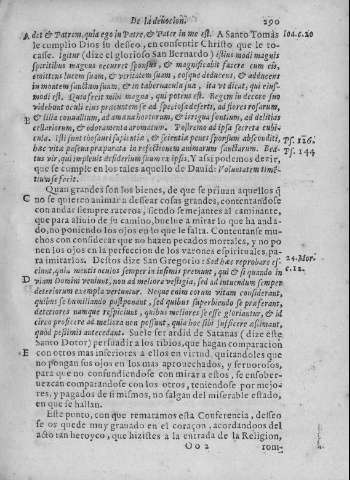 De la deuocion. 290
A det & Patrem, quia ego in Patre, & Pater in me est. A Santo Tomás Ioā.c.20
le cumplio Dios su deseo, en consentir Christo que le to-
casse. Igitur (dize el glorioso San Bernardo) istius modi magnis
spiritibus magnus occurret sponsus, & magnificabit facere cum eis,
emittens lucem suam, & veritatem suam, eosque deducens, & adducens
in montem sanctum suum, & in tabernacula sua, ita vt dicat, qui eius-
modi est. Quia fecit mihi magna, qui potens est. Regem in decore suo
videbunt oculi eius præeuntem se ad speciosa deserti, ad flores rosarum,
B & lilia conuallium, ad amœna hortorum, & irrigua fontium, ad delitias
cellariorum, & odoramenta aromatum. Postremo ad ipsa secreta cubi-
culi. Isti sunt thesauri sapientiæ, & scientiæ penes sponsum absconditi,
hæc vitæ pascua præparata in refectionem animarum sanctarum. Bea- Ps. 126.
tus vir, qui impleuit desiderium suum ex ipsis. Y assi podemos dezir, Ps. 144
que se cumple en los tales aquello de Dauid: Voluntatem timē-
tium se faciet.
Quan grandes son los bienes, de que se priuan aquellos q̃
C no se quieren animar a dessear cosas grandes, contentandose
con andar siempre rateros, siendo semejantes al caminante,
que para aliuio de su camino, buelue a mirar lo que ha anda-
do, no poniendo los ojos en lo que le falta. Contentanse mu-
chos con considerar que no hazen pecados mortales, y no po
nen los ojos en la perfeccion de los varones espirituales, pa-
ra imitarlos. Destos dize San Gregorio: Sed hæc reprobare es- 24. Mor.
D ciunt, quia mentis oculos semper in infimis premunt, qui & si quando in c.12.
viam Domini veniunt, non ad meliora vestigia, sed ad intuendum semper
deteriorum exempla vertuntur. Neque enim eorum vitam considerant,
quibus se humiliando postponant, sed quibus superbiendo se præferant,
deteriores namque respiciunt, quibus meliores se esse gloriantur, & id
circo proficere ad meliora non possunt, quia hoc sibi sufficere æstimant,
quod pessimis antecedunt. Suele ser ardid de Satanas (dize este
Santo Dotor) persuadir a los tibios, que hagan comparacion
E con otros mas inferiores a ellos en virtud, quitandoles que
no pongan sus ojos en los mas aprouechados, y feruorosos,
para que no confundiendose con mirar a estos, se ensober-
uezcan comparandose con los otros, teniendose por mejo-
res, y pagados de si mismos, no salgan del miserable estado,
en que se hallan.
Este punto, con que rematamos esta Conferencia, desseo
se os quede muy grauado en el coraçon, acordandoos del
acto tan heroyco, que hizistes a la entrada de la Religion,
Oo 2 rom-